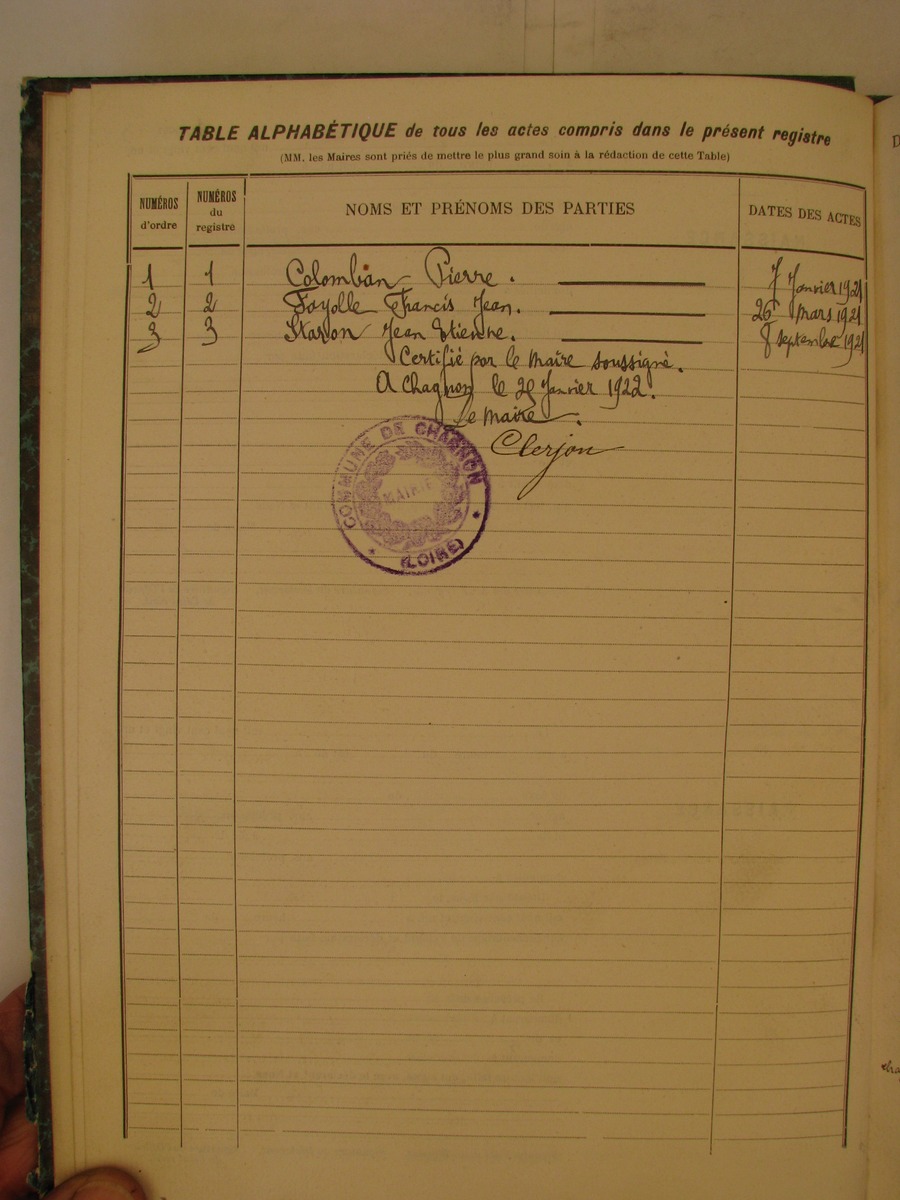 TABLE ALPHABÉTIQUE de tous les actes compris dans le présent registre
(MM. les Maires sont priés de mettre le plus grand soin à la rédaction de cette Table)
NUMÉROS d'ordre NUMÉROS du registré NOMS ET PRÉNOMS DES PARTIES DATES DES ACTES
1 1 Colomban Pierre. 7 Janvier 1921
2 2 Fayolle Francis Jean. 26 mars 1921
3 3 Staron Jean Etienne. 8 septembre 1921
Certifié par le Maire soussigné.
A Chagnon le Janvier 1922.
Le Maire.
Clerjon
COMMUNE DE CHAGNON
MAIRIE
(LOIRE)